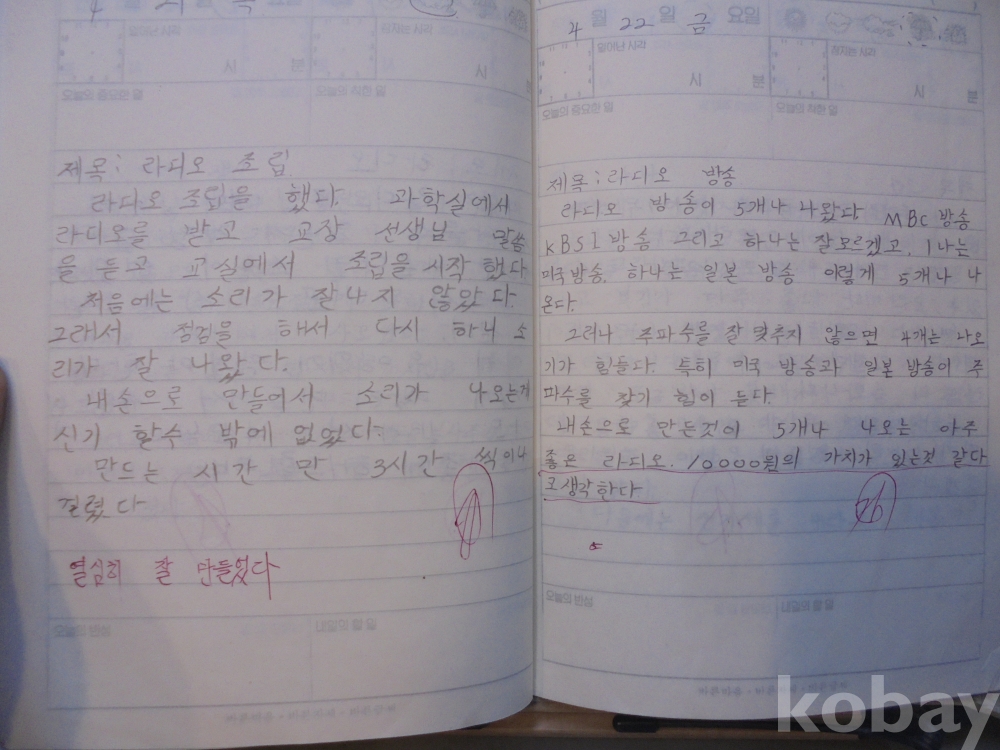 4
제목: 라디오 조립
라디오 조립을 했다. 과학실에서
라디오를 받고 교장 선생님 말씀
을 듣고 교실에서 조립을 시작 했다
처음에는 소리가 잘나지 않았다.
그래서 점검을 해서 다시 하니 소
리가 잘 나왔다.
내손으로 만들어서 소리가 나오는게
신기 할수 밖에 없었다.
만드는 시간 만 3시간 씩이나
걸렸다
열심히 잘 만들었다
오늘의 반성 내일의 할 일
4 월 22 일 금 요일
일어난 시각 시 분
시 분
오늘의 중요한 일 오늘의 착한 일
제목: 라디오 방송
라디오 방송이 5개나 나왔다. MBC 방송
KBS1 방송 그리고 하나는 잘모르겠고, 1나는
미국방송, 하나는 일본 방송 이렇게 5개나 나
온다.
그러나 주파수를 잘 맞추지 않으면 4개는 나오
기가 힘들다. 특히 미국 방송과 일본 방송이 주
파수를 찾기 힘이 든다.
내손으로 만든것이 5개나 나오는 아주
좋은 라디오. 10000원의 가치가 있는것 같다
고생각한다
오늘의 반성 내일의 할 일
kobay